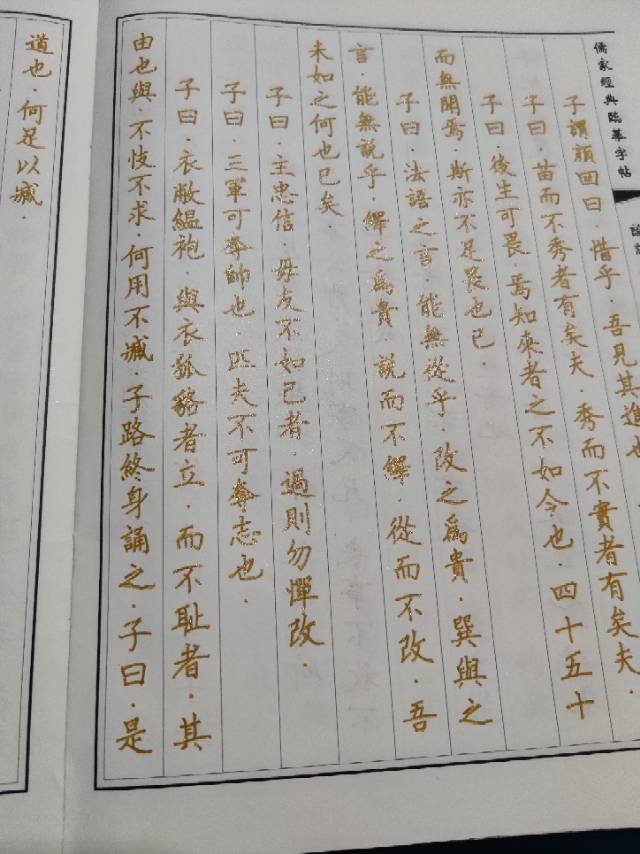 儒家經典臨摹字帖
子謂顏回曰．惜乎．吾見其進也
子曰．苗而不秀者有矣夫．秀而不實者有矣夫．
子曰．後生可畏．焉知來者之不如今也．四十五十
而無聞焉．斯亦不足畏也已．
子曰．法語之言．能無從乎．改之爲貴．巽與之
言．能無說乎．繹之爲貴．說而不繹．從而不改．吾
未如之何也已矣．
子曰．主忠信．毋友不如己者．過則勿憚改．
子曰．三軍可奪帥也．匹夫不可奪志也．
子曰．衣敝縕袍．與衣狐貉者立．而不耻者．其
由也與．不忮不求．何用不臧．子路終身誦之．子曰．是
道也．何足以臧．